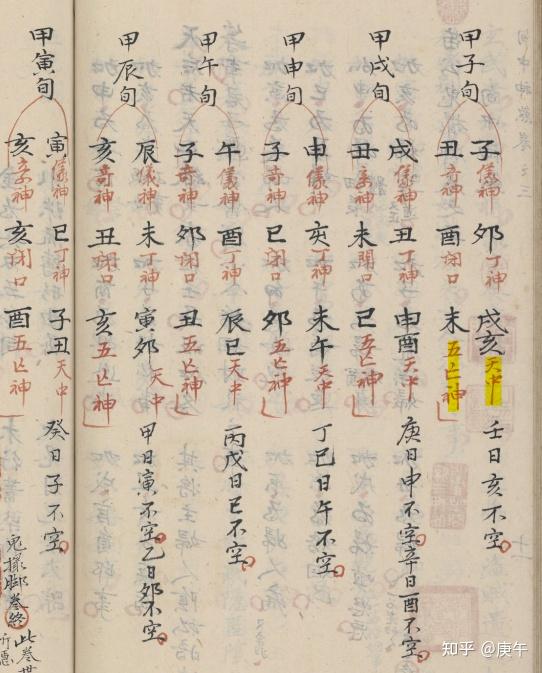 甲子旬
子儀神 卯丁神 戌亥天中 壬日亥不空
丑奇神 酉閉口 未五亡神
甲戌旬
戌儀神 丑丁神 申酉天中 庚日申不空辛日酉不空
丑奇神 未閉口 巳五亡神
甲申旬
申儀神 亥丁神 未午天中 丁巳日午不空
子奇神 巳閉口 卯五亡神
甲午旬
午儀神 酉丁神 辰巳天中 丙戊日巳不空
子奇神 卯閉口 丑五亡神
甲辰旬
辰儀神 未丁神 寅卯天中 甲日寅不空乙日卯不空
亥奇神 丑閉口 亥五亡神
甲寅旬
寅儀神 巳丁神 子丑天中 癸日子不空
亥奇神 亥閉口 酉五亡神
鬼撮脚卷終
此卷世
知乎 @庚午